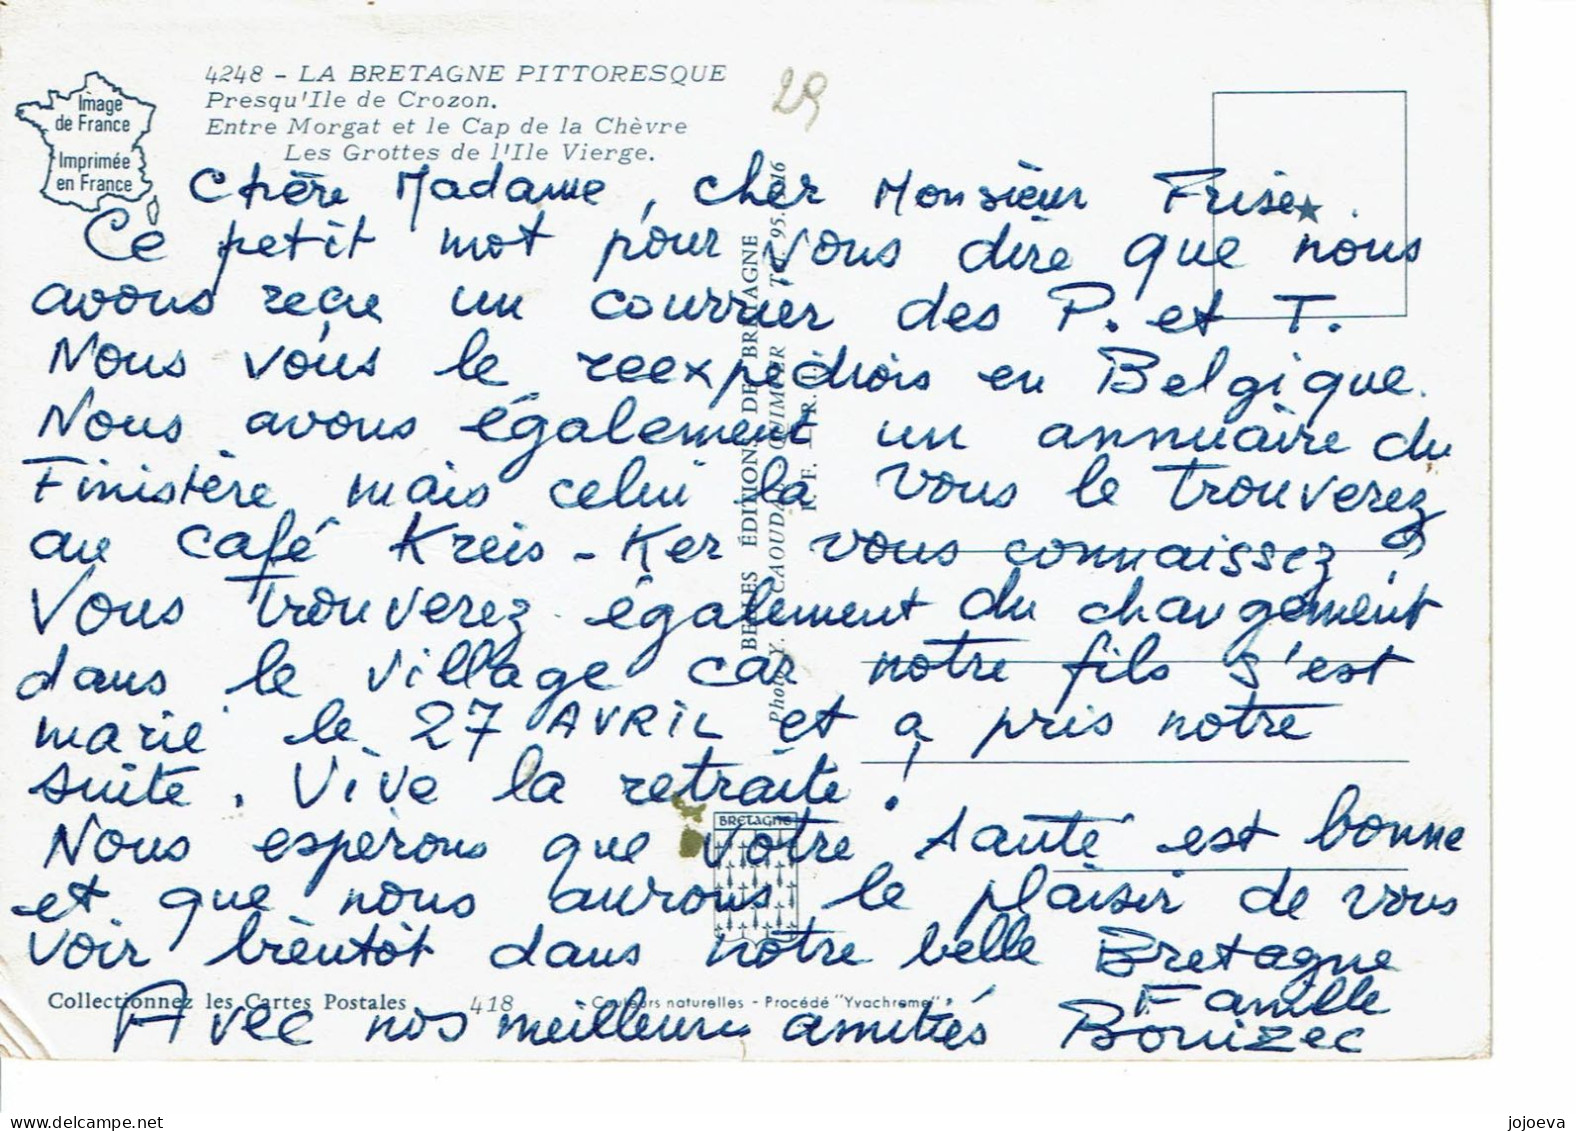 4248 - LA BRETAGNE PITTORESQUE
Presqu'Ile de Crozon.
Entre Morgat et le Cap de la Chèvre
Les Grottes de l'Ile Vierge.
Image
de France
Imprimée
en France
29
Chère Madame, cher Monsieur Frise.
Ce petit mot pour vous dire que nous
avons reçu un courrier des P. et T.
Nous vous le reexpedions en Belgique.
Nous avons également un annuaire du
Finistère mais celui là vous le trouverez
au café Kreis-Ker vous connaissez ?
Vous trouverez également du changement
dans le village car notre fils s'est
marié le 27 AVRIL et a pris notre
suite. Vive la retraite !
Nous esperons que votre santé est bonne
et que nous aurons le plaisir de vous
voir bientôt dans notre belle Bretagne
Avec nos meilleures amitiés
Famille
Bouizec
BELLES ÉDITIONS DE BRETAGNE
BRETAGNE
Collectionnez les Cartes Postales
418
Couleurs naturelles - Procédé "Yvachrome"
jojoeva
www.delcampe.net